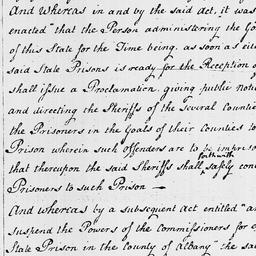 And Whereas in and by the said Act, it was
enacted "that the Person administering the Go
of this State for the Time being. as soon as eit
said State Prisons is ready for the Reception o
shall issue a Proclamation, giving public noti
and directing the Sheriffs of the several Counties
the Prisoners in the Goals of their Counties to
Prison wherein such offenders are to be impriso
that thereupon the said Sheriffs shall forthwith safely con
Prisoners to such Prison —
And whereas by a subsequent Act entitled "an
suspend the Powers of the Commissioners for e
State Prison in the County of Albany" the sa